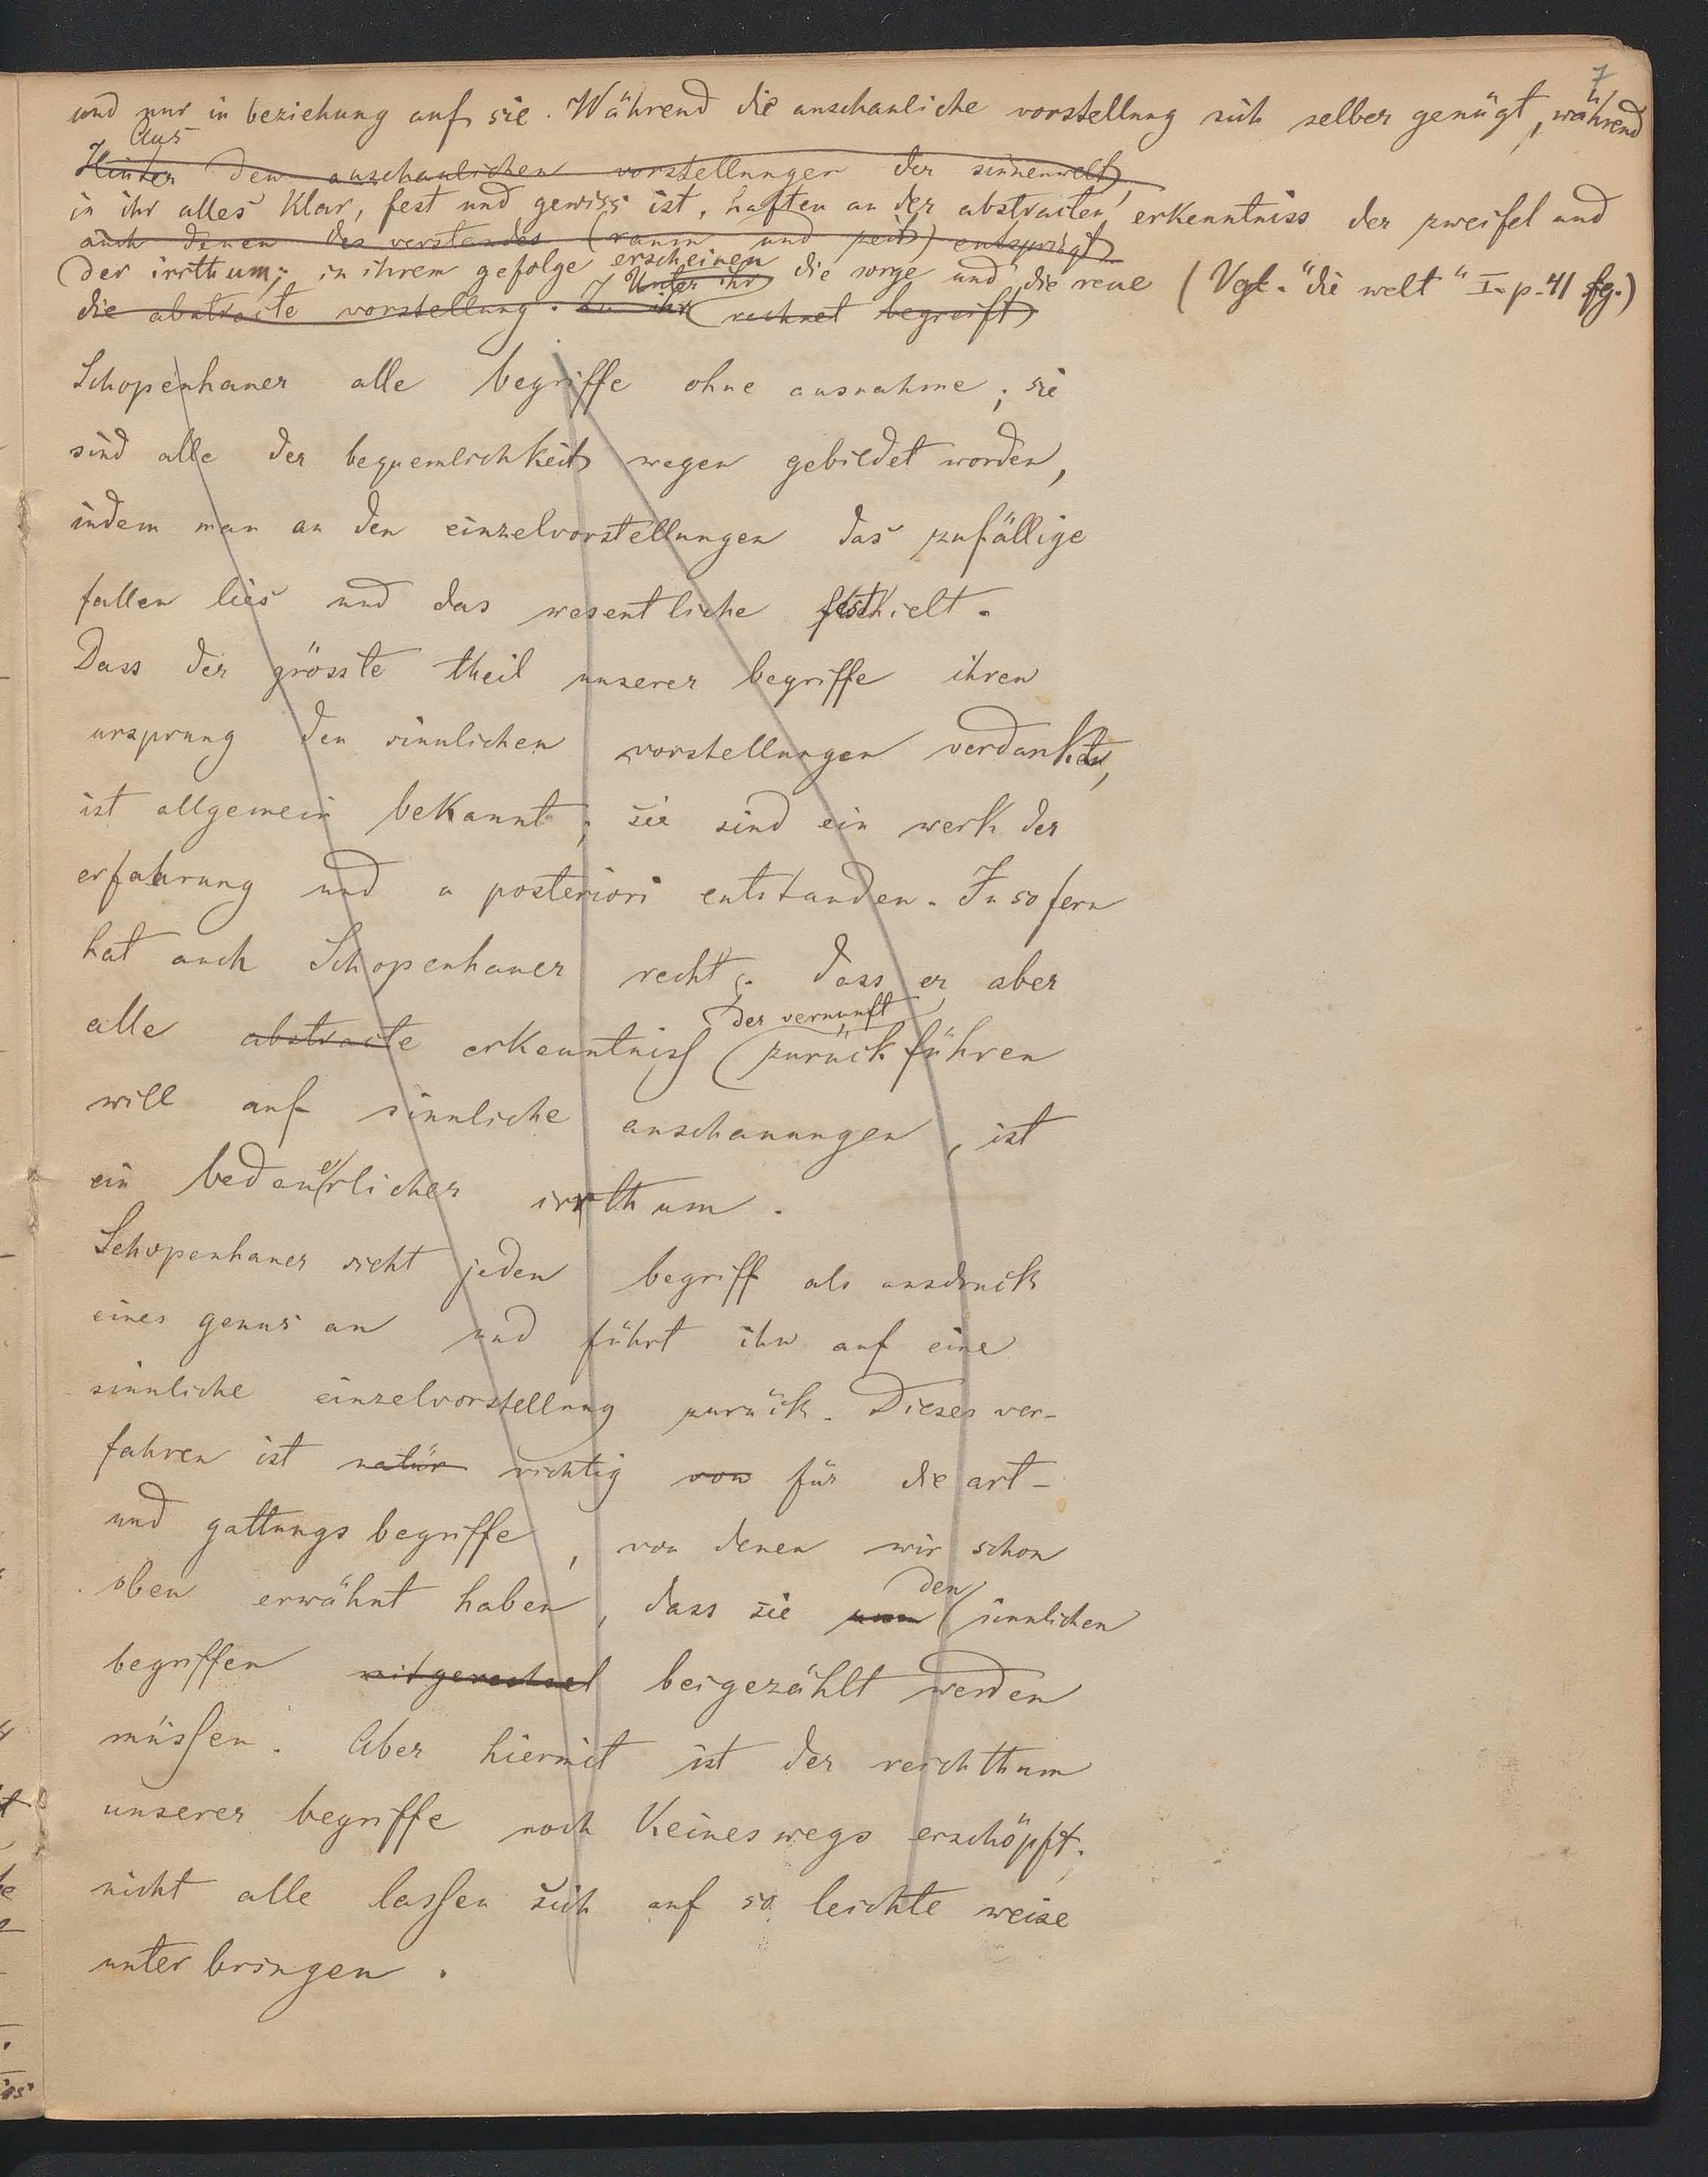 7
und nur in beziehung auf sie. Während die anschauliche vorstellung sich selber genügt, während
Aus
Hinter den anschaulichen vorstellungen der sinnenwelt,
in ihr alles klar, fest und gewiss ist, haften an der abstracten erkenntniss der zweifel und
auch denen des verstandes (raum und zeit) entspringt
der irrthum; in ihrem gefolge erscheinen die sorge und die reue (Vgl. "die welt" I. p. 41 fg.)
Unter ihr
die abstracte vorstellung. Zu ihr rechnet begreift
Schopenhauer alle begriffe ohne ausnahme; sie
sind alle der bequemlichkeit wegen gebildet worden,
indem man an den einzelvorstellungen das zufällige
fallen lies und das wesentliche festhielt.
Dass der grösste theil unserer begriffe ihren
ursprung den sinnlichen vorstellungen verdanken,
ist allgemein bekannt; sie sind ein werk der
erfahrung und a posteriori entstanden. Insofern
hat auch Schopenhauer recht; dass er aber
der vernunft
alle abstracte erkenntniss zurückführen
will auf sinnliche anschauungen, ist
ein bedeuerlicher irrthum.
Schopenhauer sieht jeden begriff als ausdruck
eines genus an und führt ihn auf eine
sinnliche einzelvorstellung zurück. Dieses ver-
fahren ist natür richtig von für die art-
und gattungsbegriffe, von denen wir schon
den
oben erwähnt haben, dass sie sinnlichen
begriffen mitgerechnet beigezählt werden
müssen. Aber hiermit ist der reichthum
unserer begriffe noch keineswegs erschöpft;
nicht alle lassen sich auf so leichte weise
unterbringen.